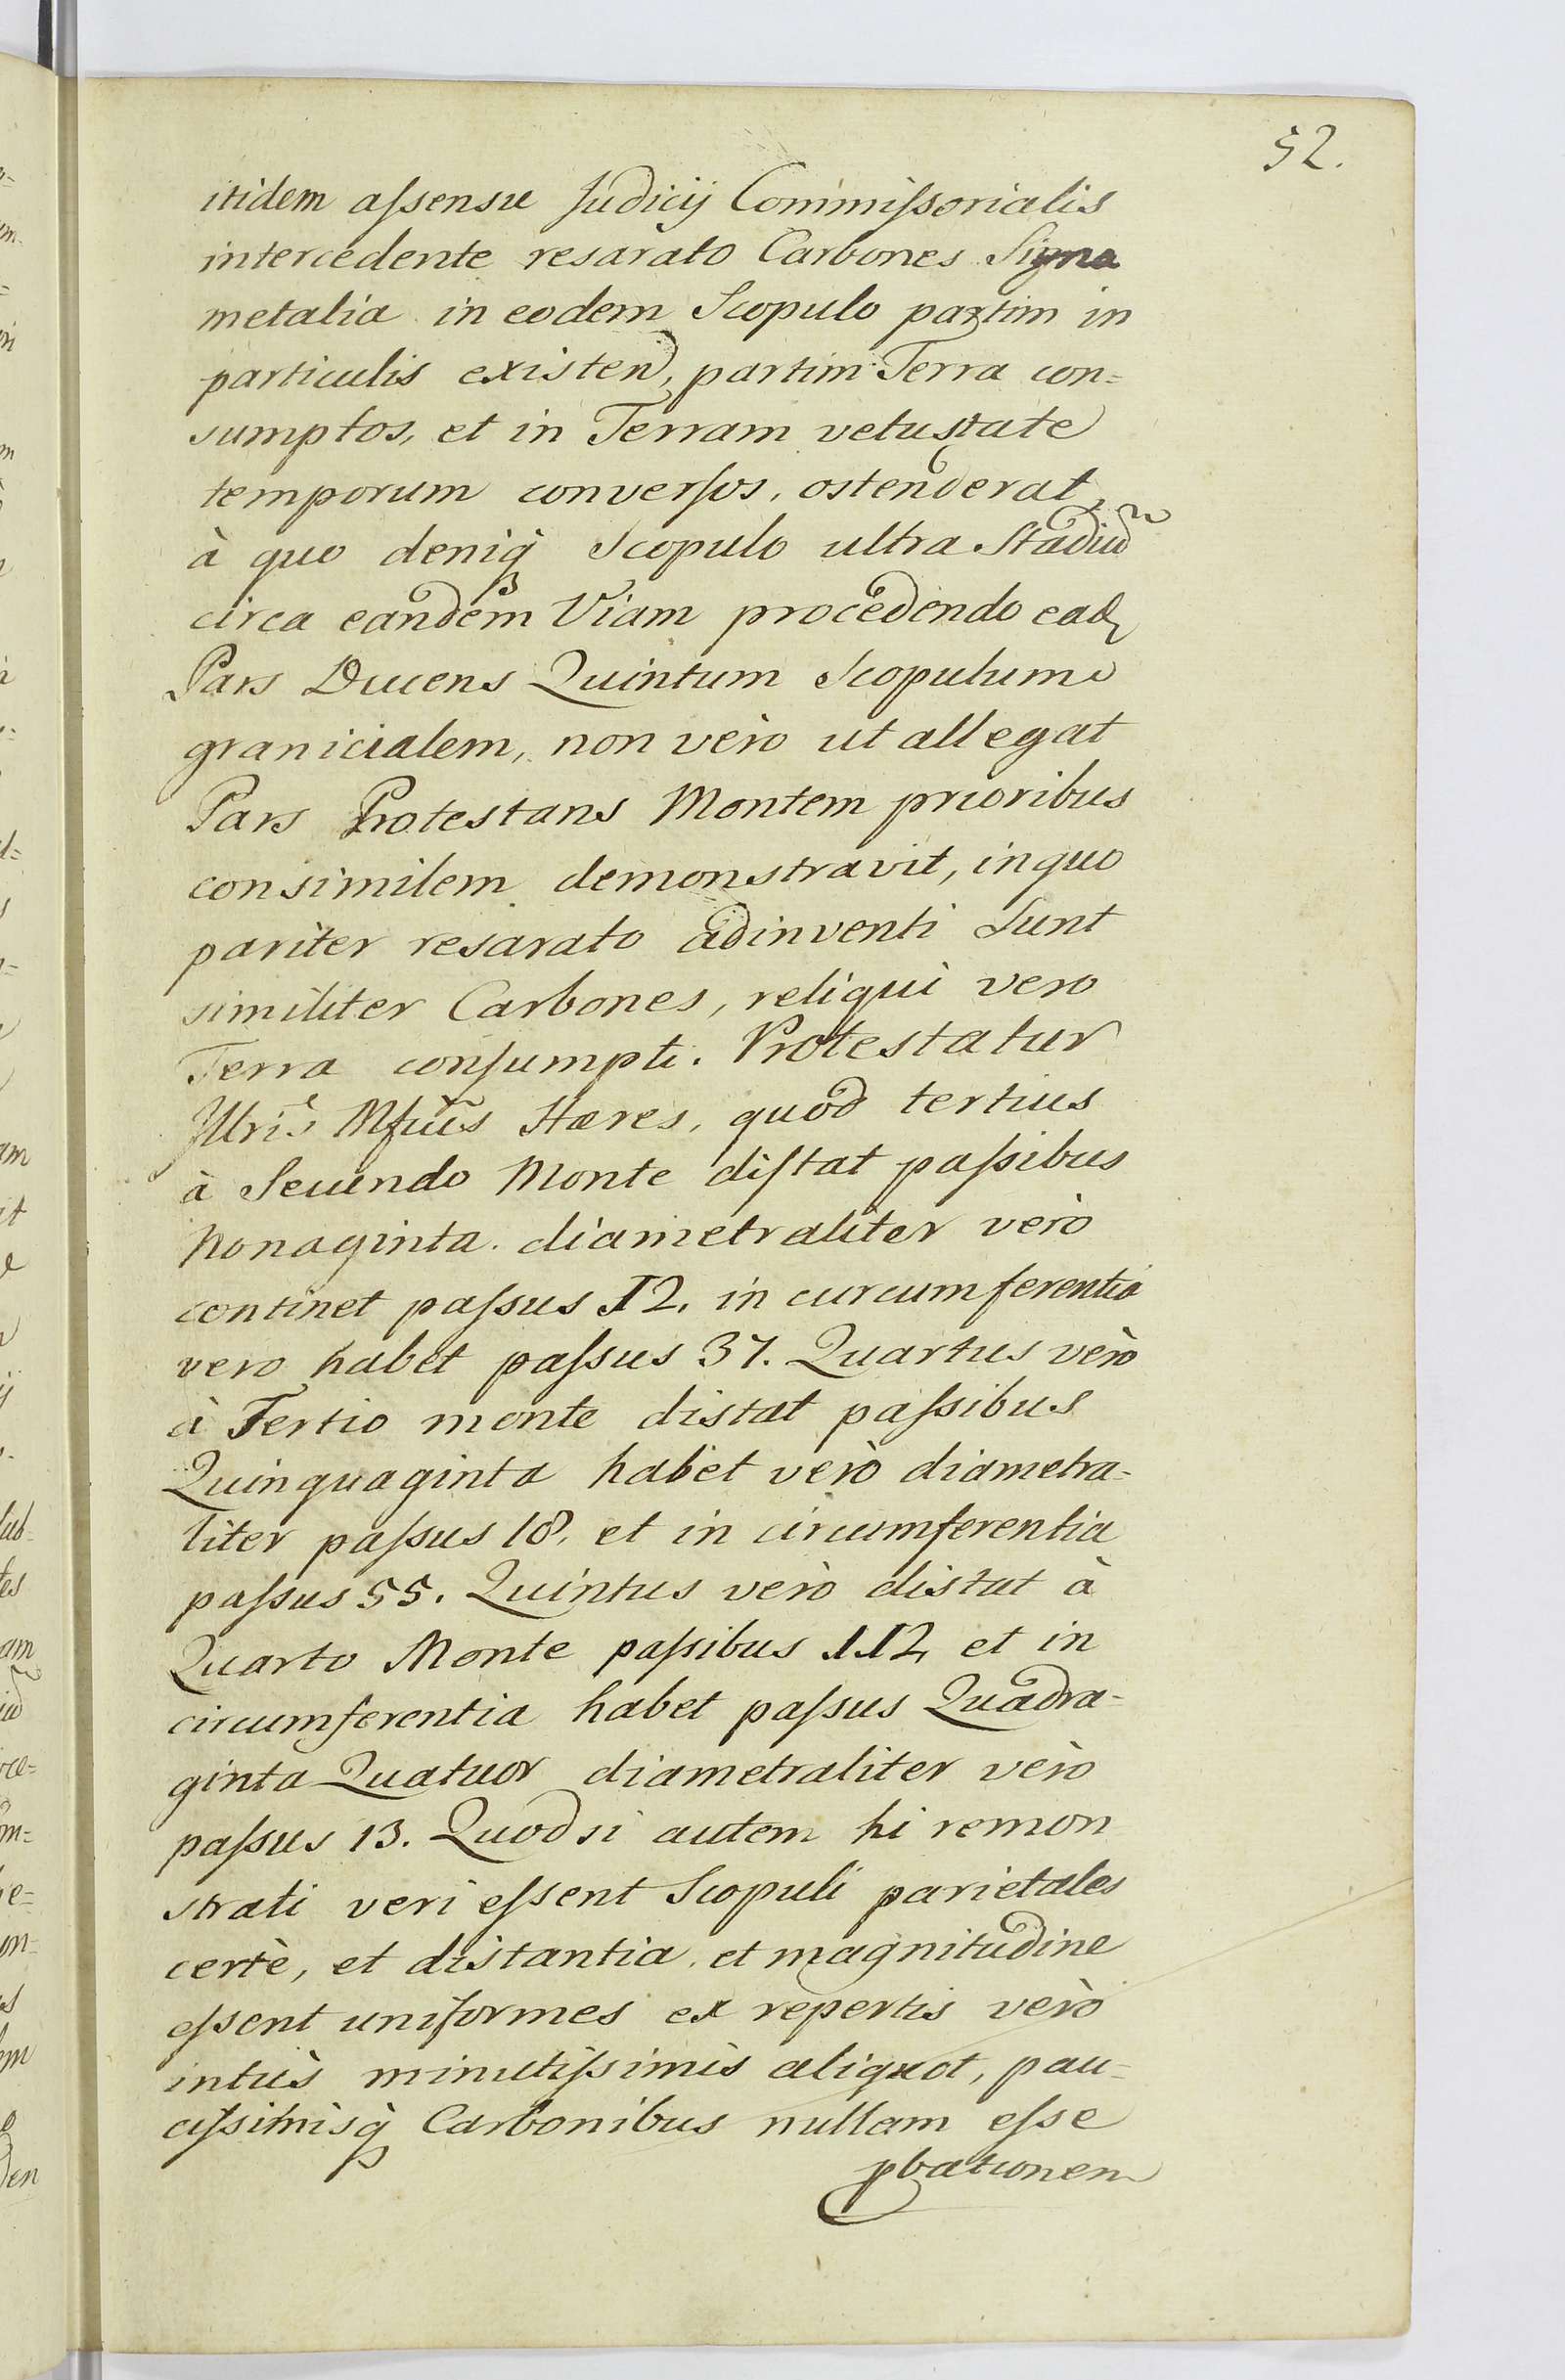 52.
itidem aſsensu Judicij Commiſsorialis
intercedente resarato Carbones Signa
metalia in eodem Scopulo partim in
particulis existend, partim Terra con=
sumptos, et in Terram vetustate
temporum converſos, ostenderat,
à quo deniq̀ Scopulo ultra Stadiu͠
circa eandem Viam procedendo ead
Pars Ducens Quintum Scopulum
granicialem, non vèro ut allegat
Pars Protestans Montem prioribus
consimilem demonstravit, in quo
pariter resarato adinventi Sunt
similiter Carbones, reliqui vero
Terra conſumpti. Protestatur
Illris Mfic̃us Hæres, quod tertius
à Secundo Monte diſtat paſsibus
Nonaginta. diametraliter vèrò
continet paſsus 12. in curcumferentia
vero habet paſsus 37. Quartus vèrò
à Tertio monte distat paſsibus
Quinquaginta habet vèrò diametra-
liter paſsus 18, et in circumferentia
paſsus 55. Quintus vèrò distat à
Quarto Monte paſsibus 112, et in
circumferentia habet paſsus Quadra-
ginta Quatuor diametraliter vèrò
paſsus 13. Quodsi autem hi remon
strati veri eſsent Scopuli parietales
certè, et distantia, et magnitudine
eſsent uniformes ex repertis vèrò
intùs minutiſsimis aliquot, pau-
ciſsimisq̀ Carbonibus nullam eſse
pbationem